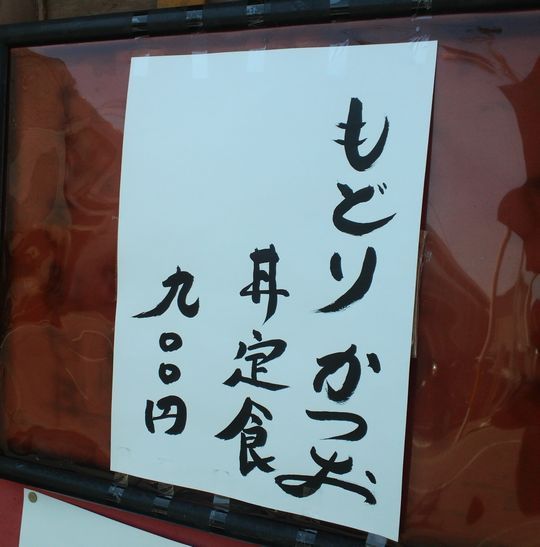 もどりかつお
丼定食
九〇〇円